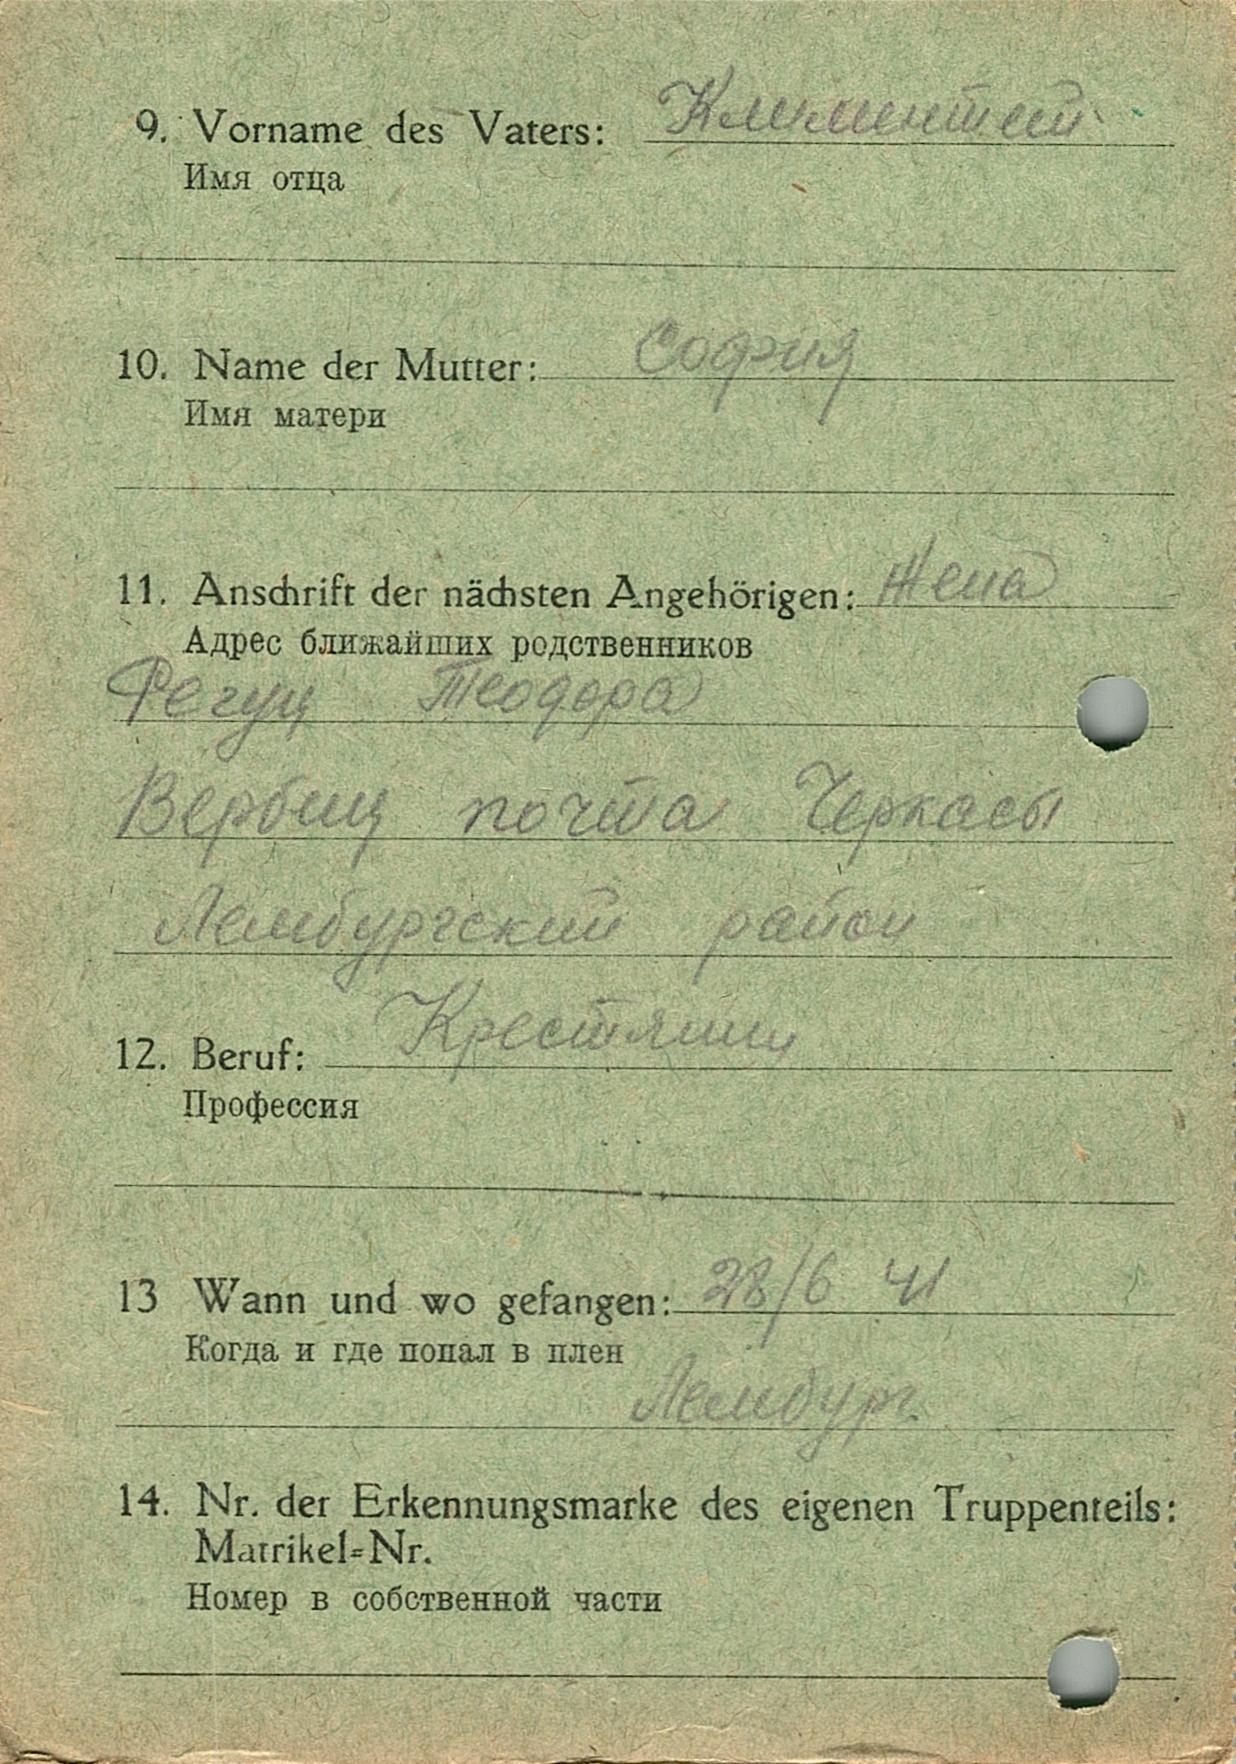 9. Vorname des Vaters: Климентий
Имя отца
10. Name der Mutter: София
Имя матери
11. Anschrift der nächsten Angehörigen: Жена
Адрес ближайших родственников
Фегуц Теодора
Вербиц почта Черкасы
Лембургский район
12. Beruf: Крестянин
Профессия
13 Wann und wo gefangen: 28/6 41
Когда и где попал в плен
Лембург.
14. Nr. der Erkennungsmarke des eigenen Truppenteils:
Matrikel=Nr.
Номер в собственной части